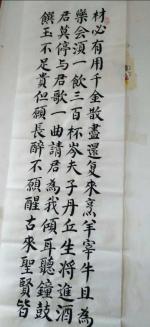 材必有用千金散盡還复來烹羊宰牛且為
樂会須一飲三百杯岑夫子丹丘生將進酒
君莫停与君歌一曲請君為我傾耳聽鐘鼓
饌玉不足貴但願長醉不願醒古來聖賢皆